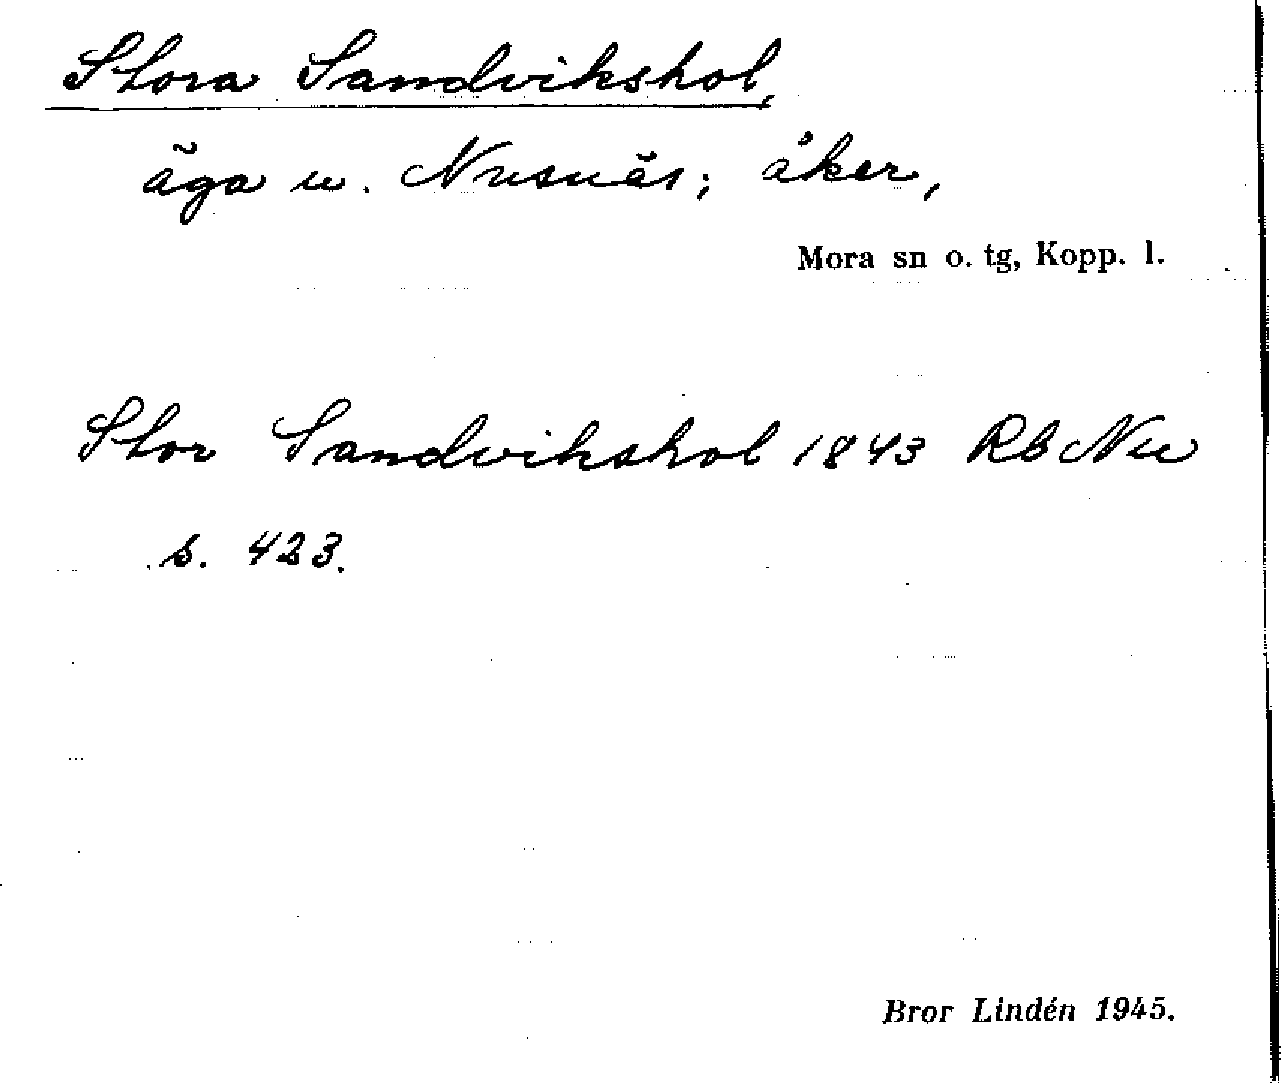 Stora Sandvikshol,
äga u. Nusnäs; åker,
Mora sn o. tg, Kopp. l.
Stor Sandvikshol 1843 Rb Nu
s. 423.
Bror Lindén 1945.